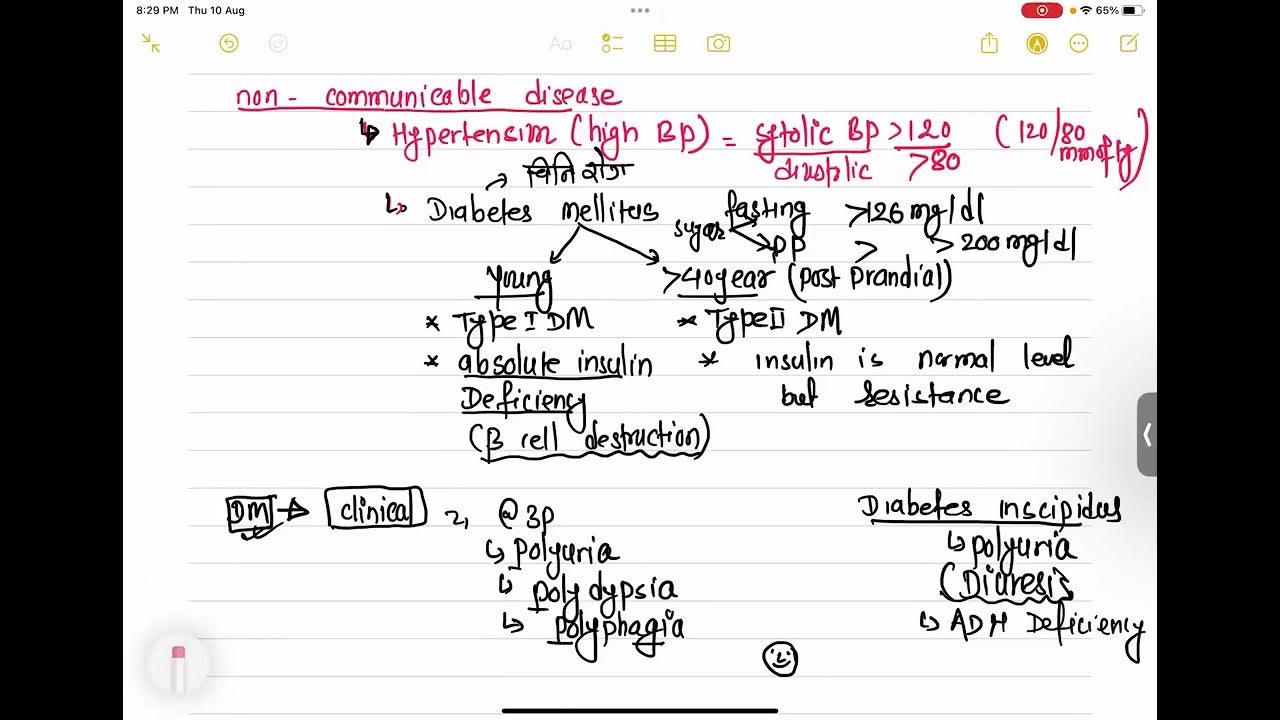 8:29 PM Thu 10 Aug
65%
Aa
non - communicable disease
↳ Hypertension (high BP) = systolic BP >120 (120/80 mm of Hg)
diastolic >80
चिनि रोग
↳ Diabetes mellitus sugar fasting >126 mg/dl
PP > >200 mg/dl
Young >40 year (Post Prandial)
* Type I DM * Type II DM
* absolute insulin * insulin is normal level
Deficiency but resistance
(β cell destruction)
DM → clinical @ 3p Diabetes inscipidus
↳ polyuria ↳ polyuria
↳ poly dypsia (Diuresis)
↳ polyphagia ↳ ADH Deficiency